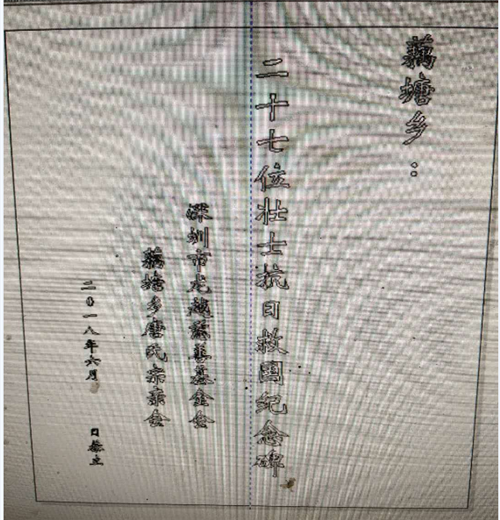 藕塘乡：
二十七位壮士抗日救国纪念碑
深圳市龙越慈善基金会
藕塘乡唐氏宗亲会
二0一八年六月 日恭立